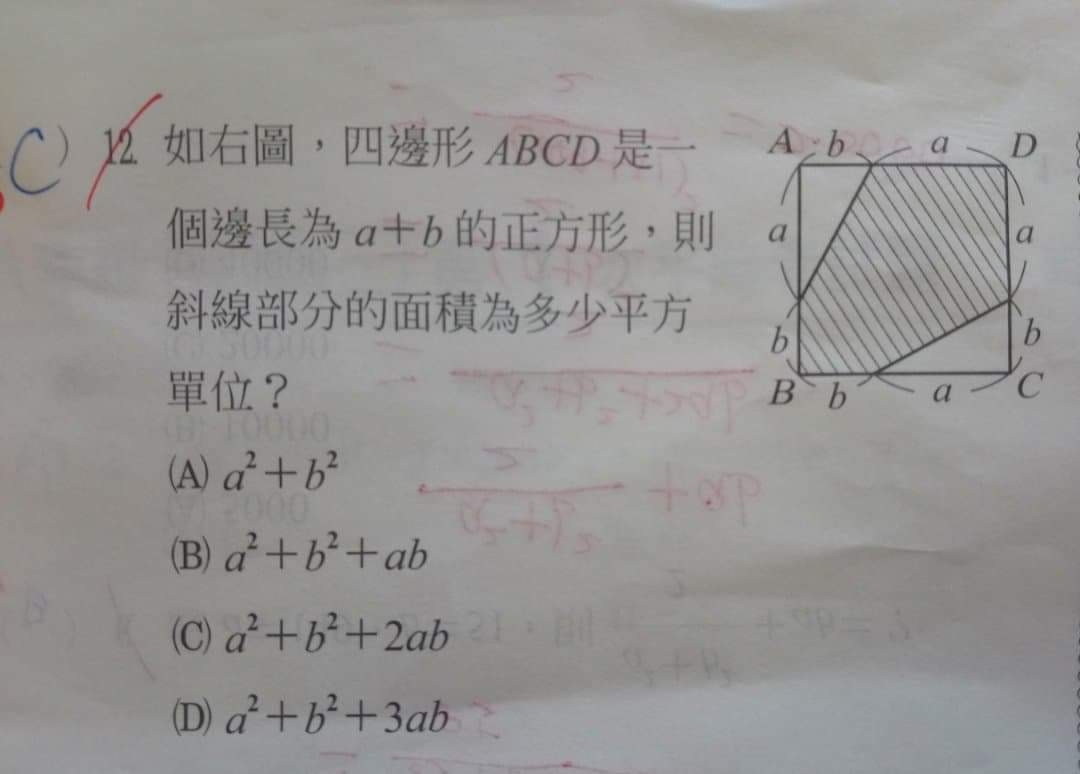 C) 12. 如右圖，四邊形 ABCD 是一
個邊長為 a＋b 的正方形，則
斜線部分的面積為多少平方
單位？
(A) a²＋b²
(B) a²＋b²＋ab
(C) a²＋b²＋2ab
(D) a²＋b²＋3ab
A b a D
a a
b b
B b a C